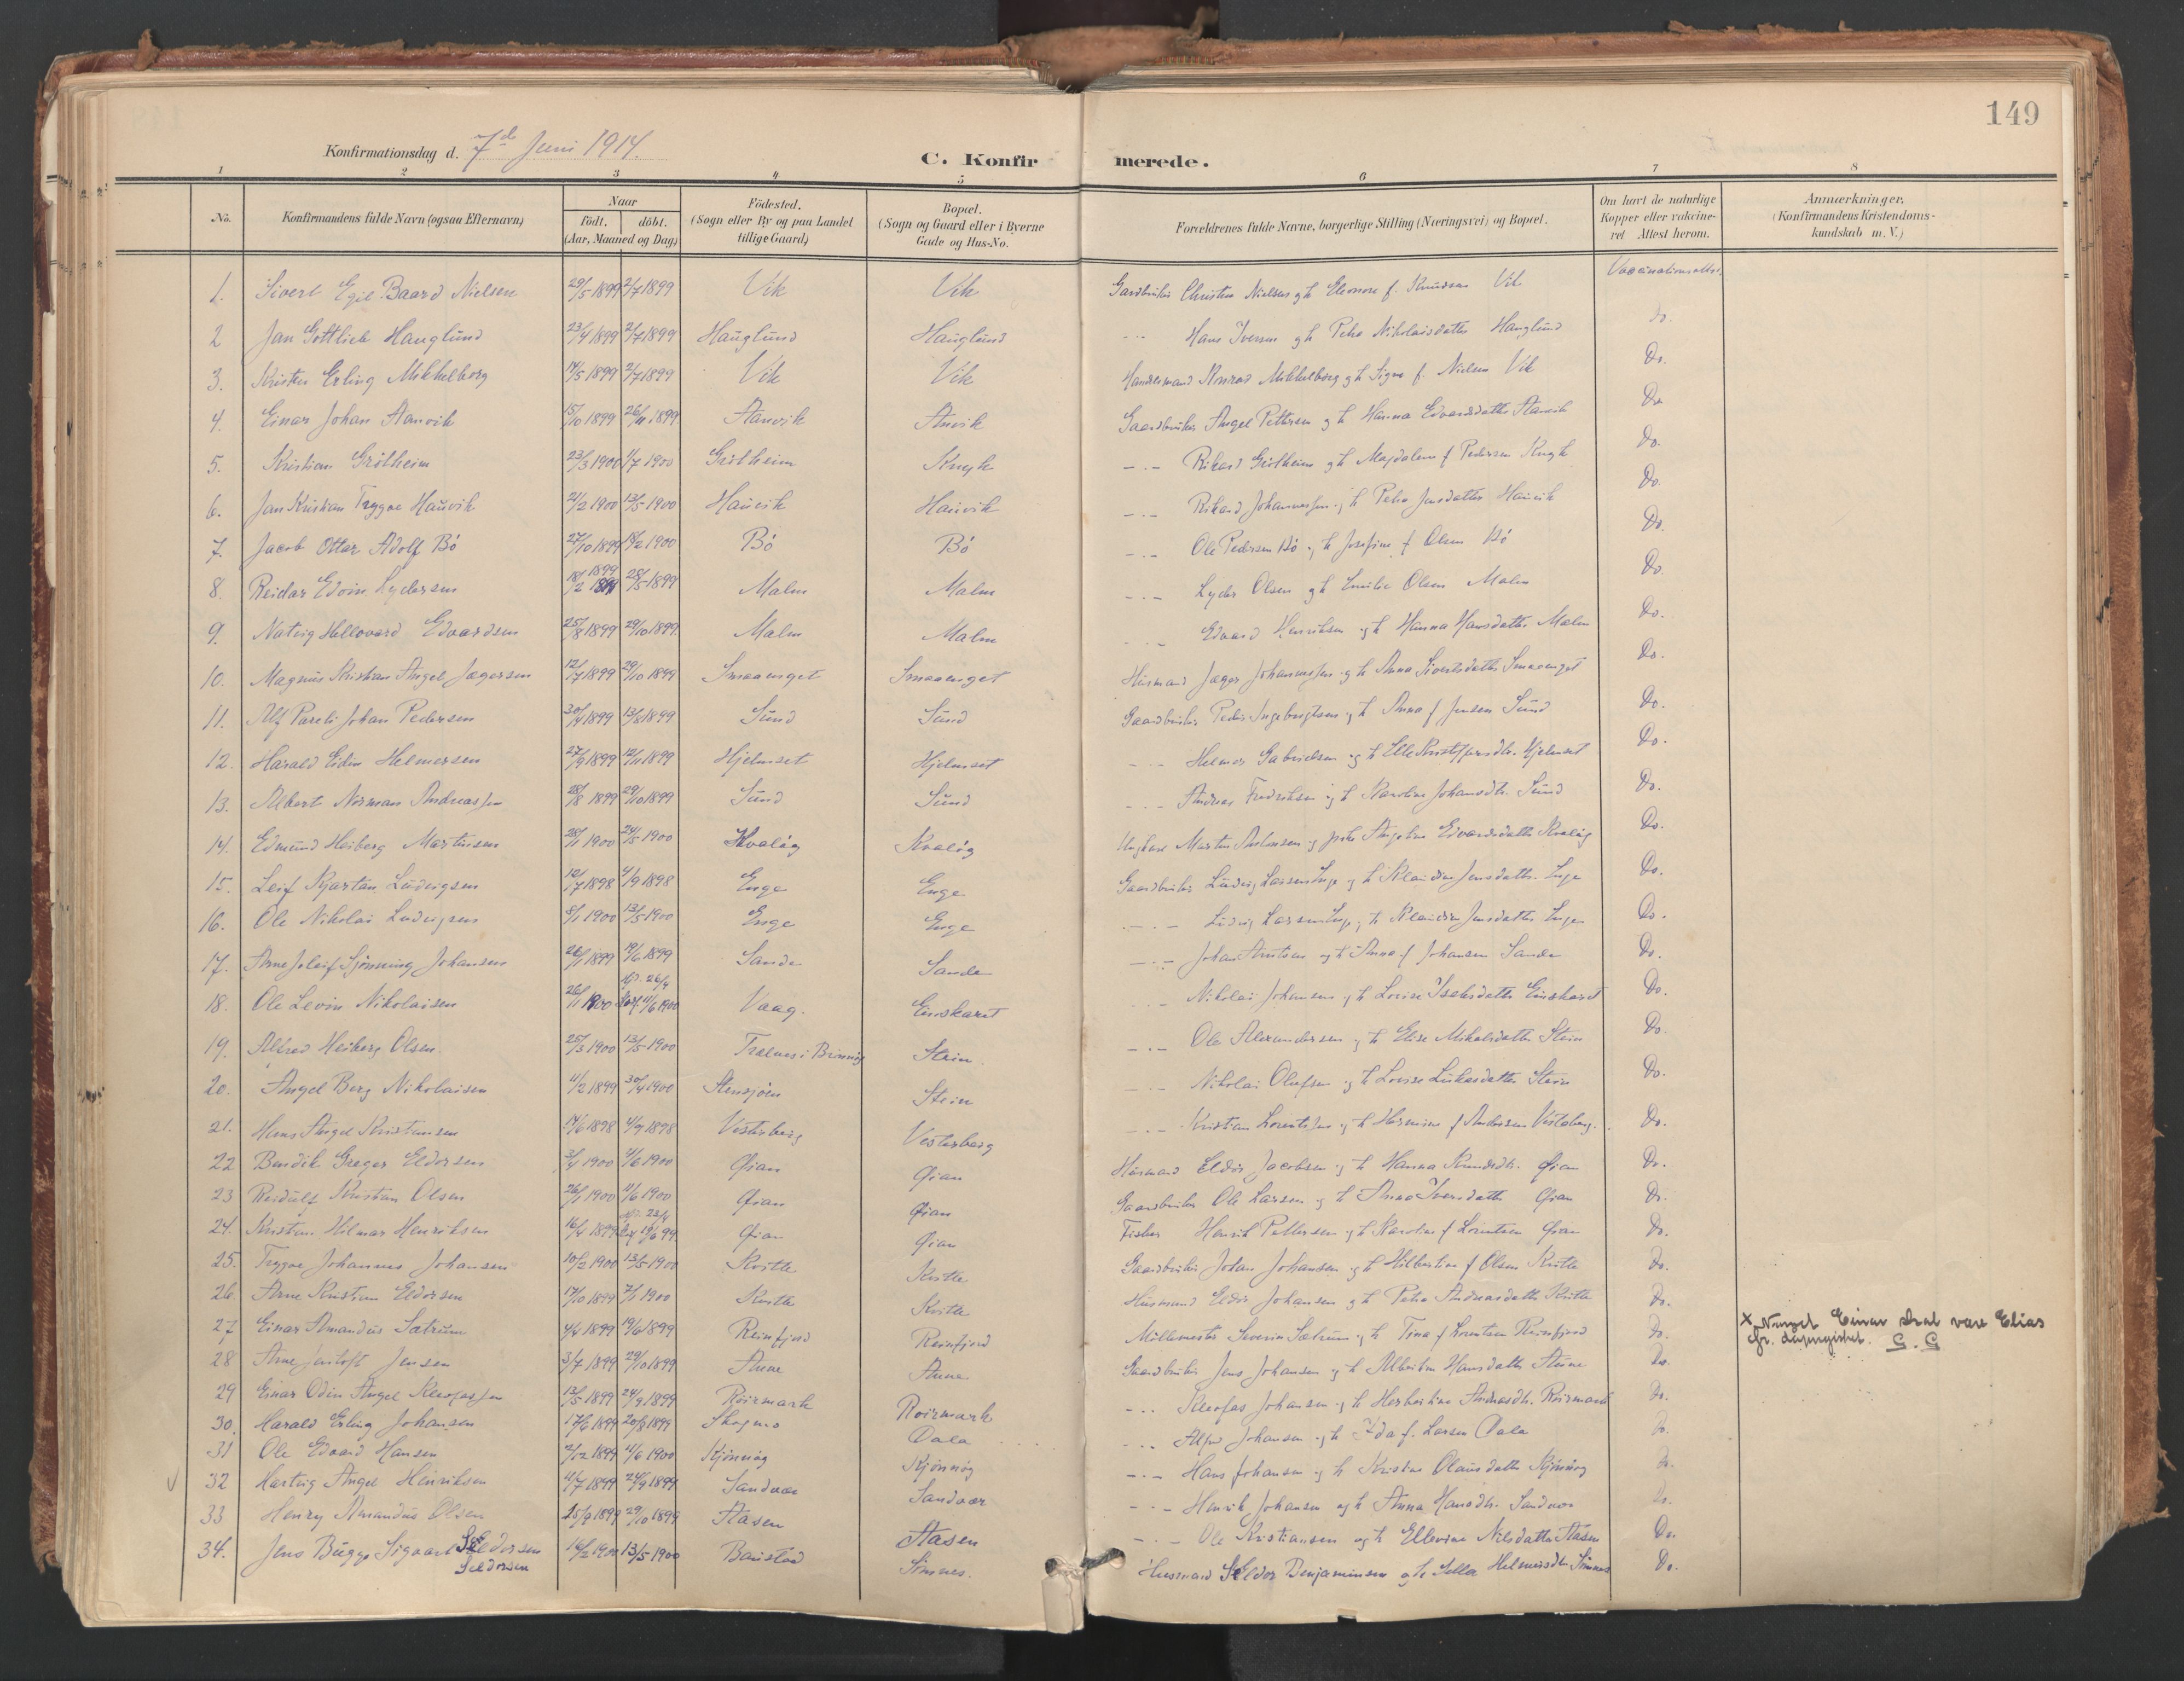 149
Konfirmationsdag d. 7de Juni 1914.
C. Konfirmerede.
1 2 3 4 5 6 7 8
No. Konfirmandens fulde Navn (ogsaa Efternavn) Naar födt. döbt. (Aar, Maaned og Dag) Födested. (Sogn eller By og paa Landet tillige Gaard) Bopæl. (Sogn og Gaard eller i Byerne Gade og Hus-No. Forældrenes fulde Navne, borgerlige Stilling (Næringsvei) og Bopæl. Om havt de naturlige Kopper eller vaccineret Attest herom. Anmærkninger. (Konfirmandens Kristendomskundskab m. V.)
1. Sivert Egil Baard Nielsen 29/5 1899 2/7 1899 Vik Vik Gardbruker Christen Nielsen og h Eleonore f. Knudsen Vik Vaccinationsattest.
2 Jan Gottlieb Hauglund 23/4 1899 2/7 1899 Hauglund Hauglund -.- Hans Iversen og h Petra Nikolaisdatter Hauglund Do.
3. Kristen Erling Mikkelborg 14/5 1899 2/7 1899 Vik Vik Handelsmand Konrad Mikkelborg og h Signe f. Nielsen Vik Do.
4. Einar Johan Aanvik 15/10 1899 26/11 1899 Aanvik Anvik Gaardbruker Angel Pettersen og h Hanna Edvardsdatter Aanvik Do
5. Kristian Grötheim 23/3 1900 1/7 1900 Grötheim -.- Rikard Grötheim og h Magdalene f Pedersen Do.
6. Jan Kristian Trygve Hauvik 21/2 1900 13/5 1900 Hauvik Hauvik -.- Rikard Johannessen og h Petra Jensdatter Hauvik Do.
7. Jacob Ottar Adolf Bö 27/10 1899 18/2 1900 Bö Bö -.- Ole Pedersen Bö og h Josefine f Olsen Bö Do.
8. Reidar Edvin Lydersen 18/2 1899 28/5 1899 Malm Malm -.- Lyder Olsen og h Emilie Olsen Malm Do.
9. Natvig Hellovard Edvardsen 25/8 1899 29/10 1899 Malm Malm -.- Edvard Henriksen og h Hanna Hansdatter Malm Do.
10. Magnus Kristian Angel Jægersen 12/7 1899 29/10 1899 Smaaenget Smaaenget Husmand Jæger Johannessen og h Anna Sivertsdatter Smaaenget Do.
11. Alf Pareli Johan Pedersen 30/4 1899 13/8 1899 Sund Sund Gaardbruker Peder Ingebrigtsen og h Anna f Jensen Sund Do.
12. Harald Eidin Helmersen 27/9 1899 12/11 1899 Hjelmset Hjelmset -.- Helmer Gabrielsen og h Elle Kristofersdtr. Hjelmset Do.
13. Albert Norman Andreassen 28/8 1899 29/10 1899 Sund Sund -.- Andreas Fredriksen og h Karoline Johansdtr. Sund Do.
14. Edmund Heiberg Martinsen 28/1 1900 24/5 1900 Kvalög Kvalög Ungkarl Martin Antonsen og pike Angeline Edvardsdatter Kvalög Do.
15. Leif Kjartan Ludvigsen 12/7 1898 4/9 1898 Enge Enge Gaardbruker Ludvig Larsen Enge og h Klaudine Jensdatter. Enge Do.
16. Ole Nikolai Ludvigsen 8/1 1900 13/5 1900 Enge Enge -.- Ludvig Larsen Enge og h Klaudine Jensdatter Enge Do.
17. Arne Joleif Sjönning Johansen 26/1 1899 19/6 1899 Sande Sande -.- Johan Arntsen og h Anna f Johansen Sande Do.
18. Ole Levin Nikolaisen 26/1 1900 hjd. 26/4 11/6 1900 Vaag. Einskaret -.- Nikolai Johansen og h Lovise Isaksdatter Einskaret Do.
19. Alfred Heiberg Olsen 25/3 1900 13/5 1900 Trælnes i Brönnö Stein -.- Ole Alexandersen og h Elise Mikalsdatter Stein Do.
20. Angel Berg Nikolaisen 4/2 1899 30/4 1900 Stensjöen Stein -.- Nikolai Olufsen og h Lovise Lukasdatter Stein Do.
21. Hans Angel Kristiansen 14/6 1898 4/9 1898 Vesterberg Vesterberg -.- Kristian Lorentsen og h Hermine f Andersen Vesterberg. Do.
22 Bendik Greger Eldorsen 3/4 1900 4/6 1900 Öian Öian Husmand Eldor Jacobsen og h Hanna Knudsdtr. Öian Do.
23 Reidulf Kristian Olsen 26/1 1900 11/6 1900 Öian Öian Gaardbruker Ole Larsen og h Anna Iversdatter Öian Do.
24. Kristian Hilmar Henriksen 16/4 1899 hjd. 23/4 19/6 99 Öian Öian Fisker Henrik Pettersen og h Karoline f Lorentsen Öian Do.
25. Trygve Johannes Johansen 10/2 1900 13/5 1900 Kvitle Kvitle Gaardbruker Johan Johansen og h Hilbertine f Olsen Kvitle Do.
26. Arne Kristian Eldorsen 17/10 1899 7/1 1900 Kvitle Kvitle Husmand Eldor Johansen og h Petra Andreasdatter Kvitle Do.
27 Einar Amandus Sætrum 4/4 1899 19/6 1899 Reinfjord Reinfjord Möllemester Severin Sætrum og h Tina f Lorentsen Reinfjord Do. x Navnet Einar skal være Elias cfr. dåpsregistret. S. S
28 Arne Jentoft Jensen 3/7 1899 29/10 1899 Aune Aune Gaardbruker Jens Johansen og h Albertine Hansdatter Aune Do.
29 Einar Odin Angel Kleofassen 13/5 1899 24/9 1899 Röirmark Röirmark -.- Kleofas Johansen og h Herbertine Andreasdtr. Röirmark Do.
30. Harald Erling Johansen 17/6 1899 20/8 1899 Skogmo Dala -.- Alfred Johansen og h Ida f. Larsen Dala Do.
31 Ole Edvard Hansen 2/12 1899 4/6 1900 Kjönnög Kjönnög -.- Hans Johansen og h Kristine Olausdatter Kjönnög Do.
√ 32 Hartvig Angel Henriksen 4/7 1899 24/9 1899 Sandvær Sandvær -.- Henrik Johansen og h Anna Hansdtr. Sandvær Do.
33 Henry Amandus Olsen 15/9 1899 29/10 1899 Aasen Aasen -.- Ole Kristiansen og h Ellevine Nilsdatter Aasen Do.
34. Jens Bugge Sigvart Seldorsen 16/2 1900 13/5 1900 Barstad Simnes. Husmand Seldor Benjaminsen og h Sella Helmersdtr. Simnes Do.
Seldorsen